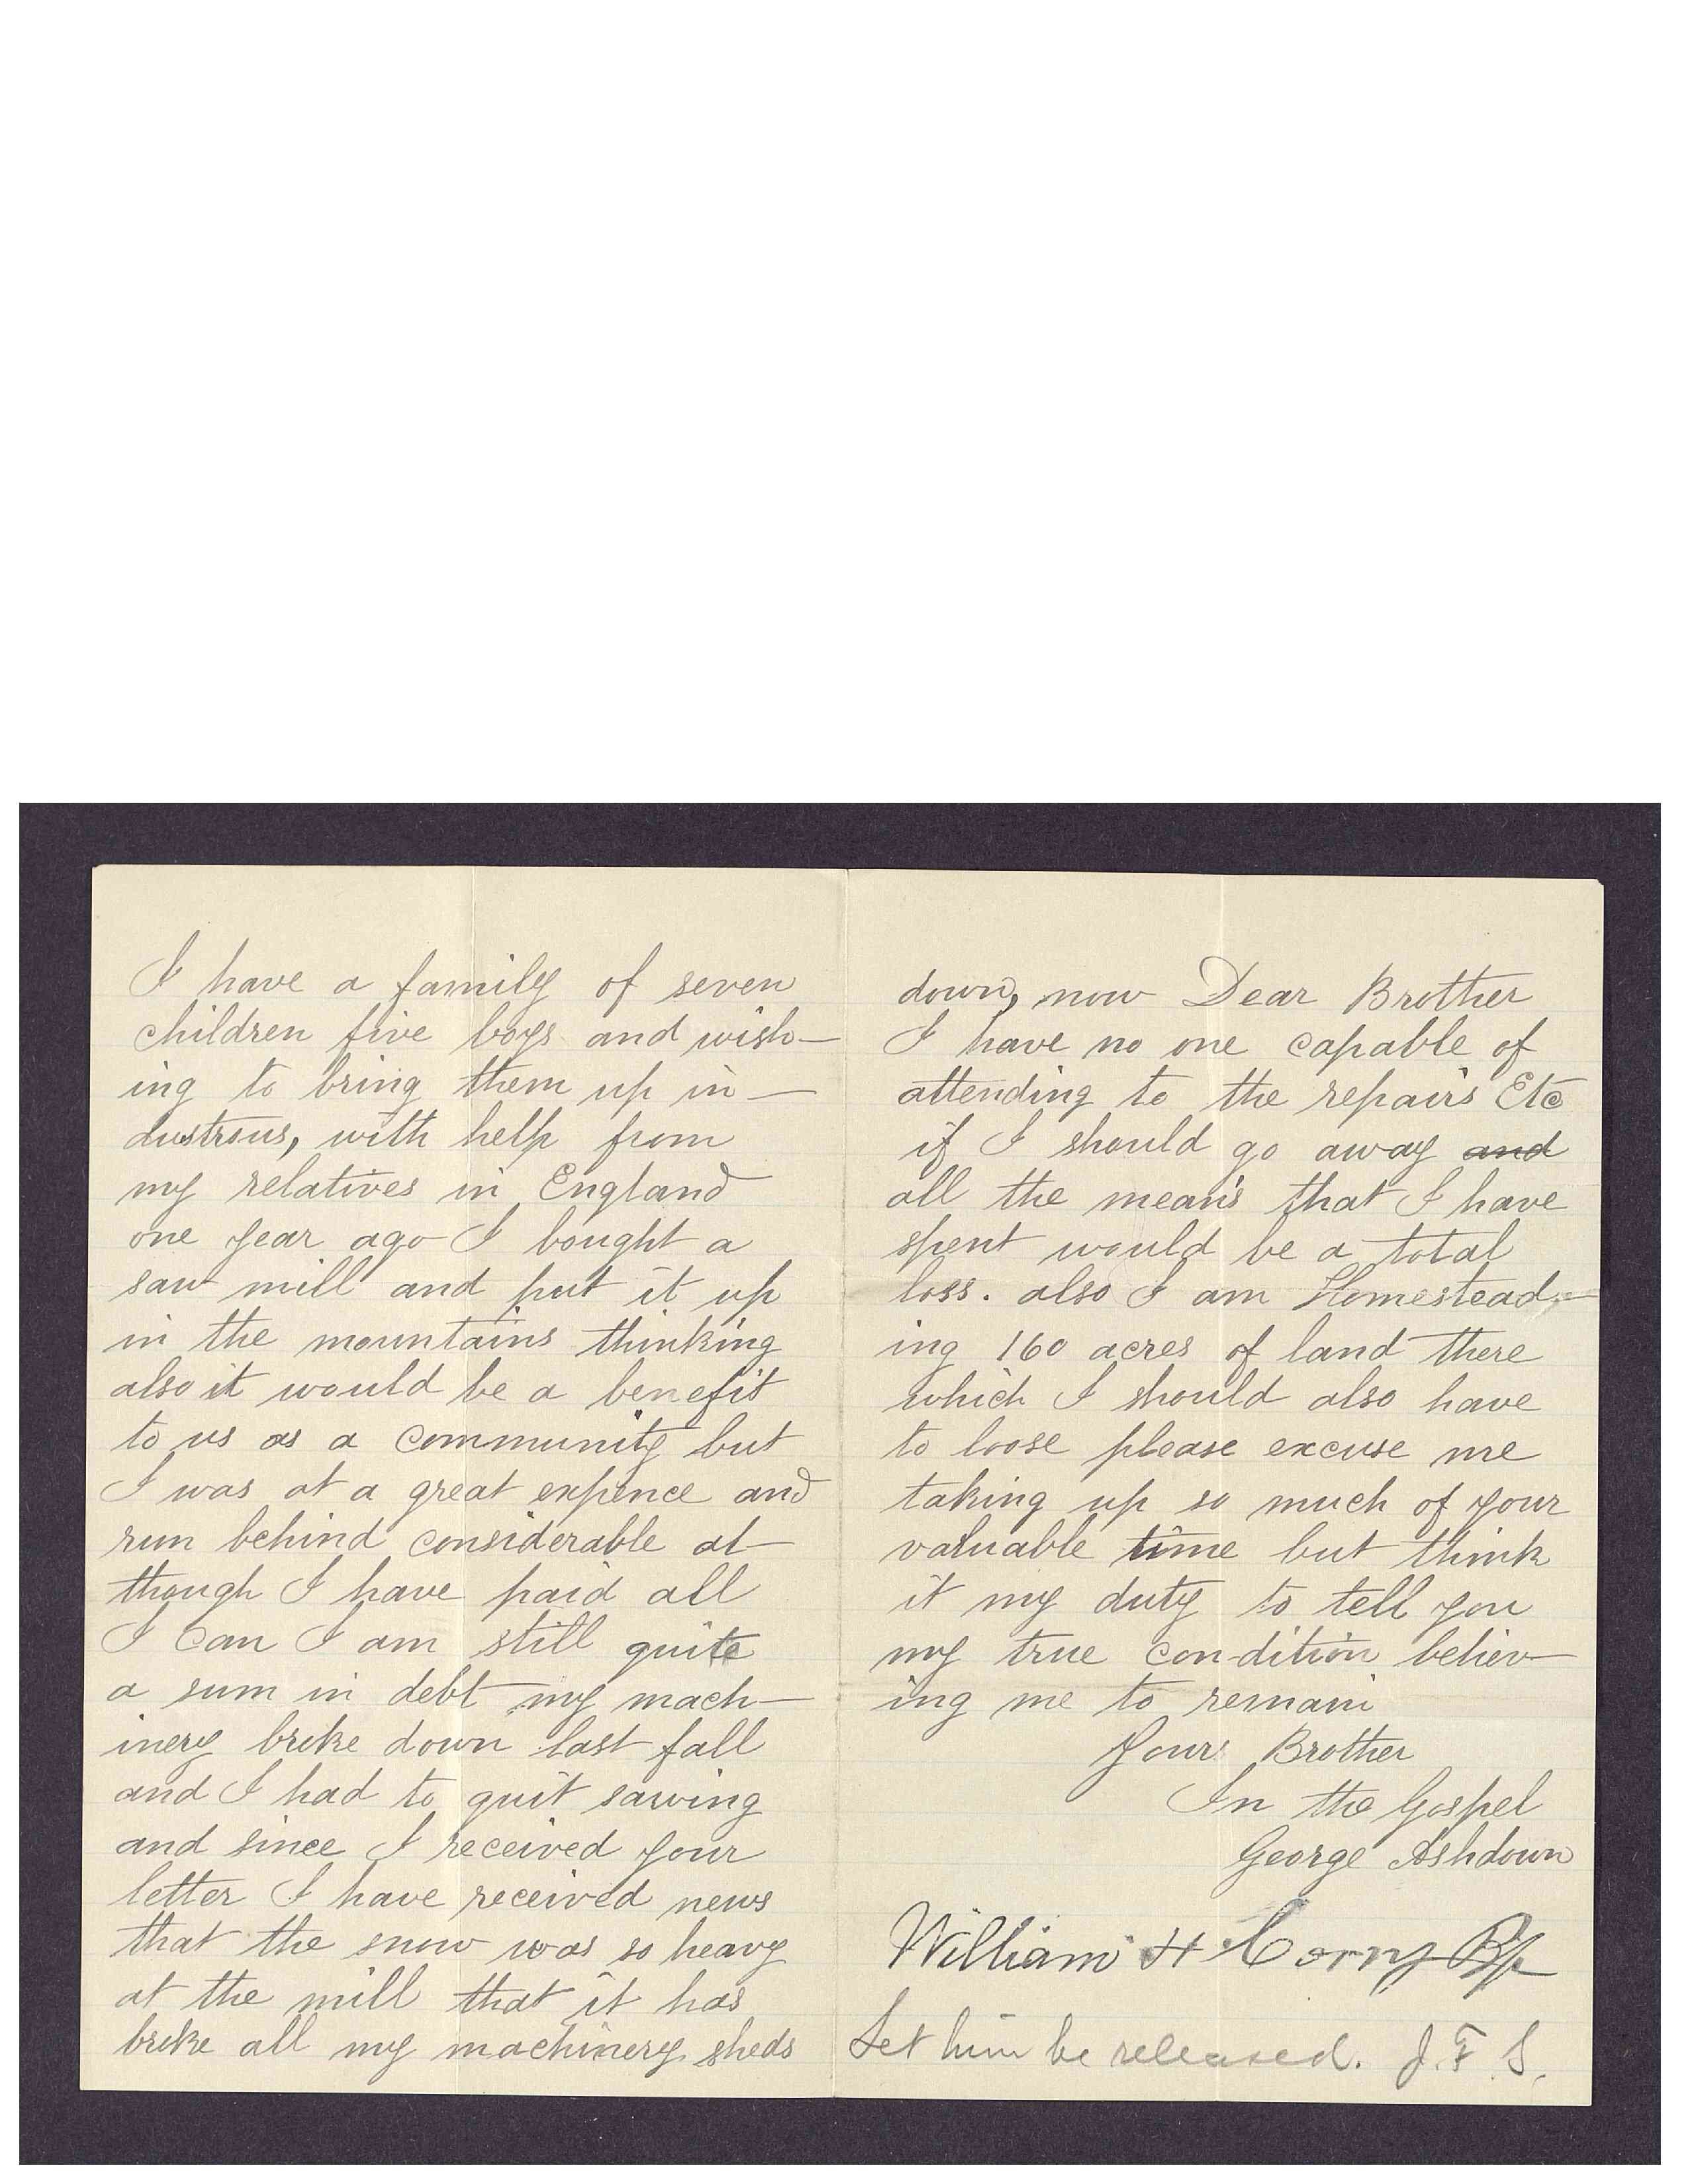 I have a family of seven
children five boys and wish-
ing to bring them up in-
dustrous, with help from
my relatives in England
one year ago I bought a
saw mill and put it up
in the mountains thinking
also it would be a benefit
to us as a community but
I was at a great expence and
run behind considerable al-
though I have paid all
I can I am still quite
a sum in debt my mach-
inery broke down last fall
and I had to quit sawing
and since I received your
letter I have received news
that the snow was so heavy
at the mill that it has
broke all my machinery sheds
down, now Dear Brother
I have no one capable of
attending to the repairs Etc
if I should go away and
all the means that I have
spent would be a total
loss. also I am Homestead-
ing 160 acres of land there
which I should also have
to loose please excuse me
taking up so much of your
valuable time but think
it my duty to tell you
my true condition believ-
ing me to remain
Your Brother
In the Gospel
George Ashdown
William H Bp
Let him be released. J. F. S.